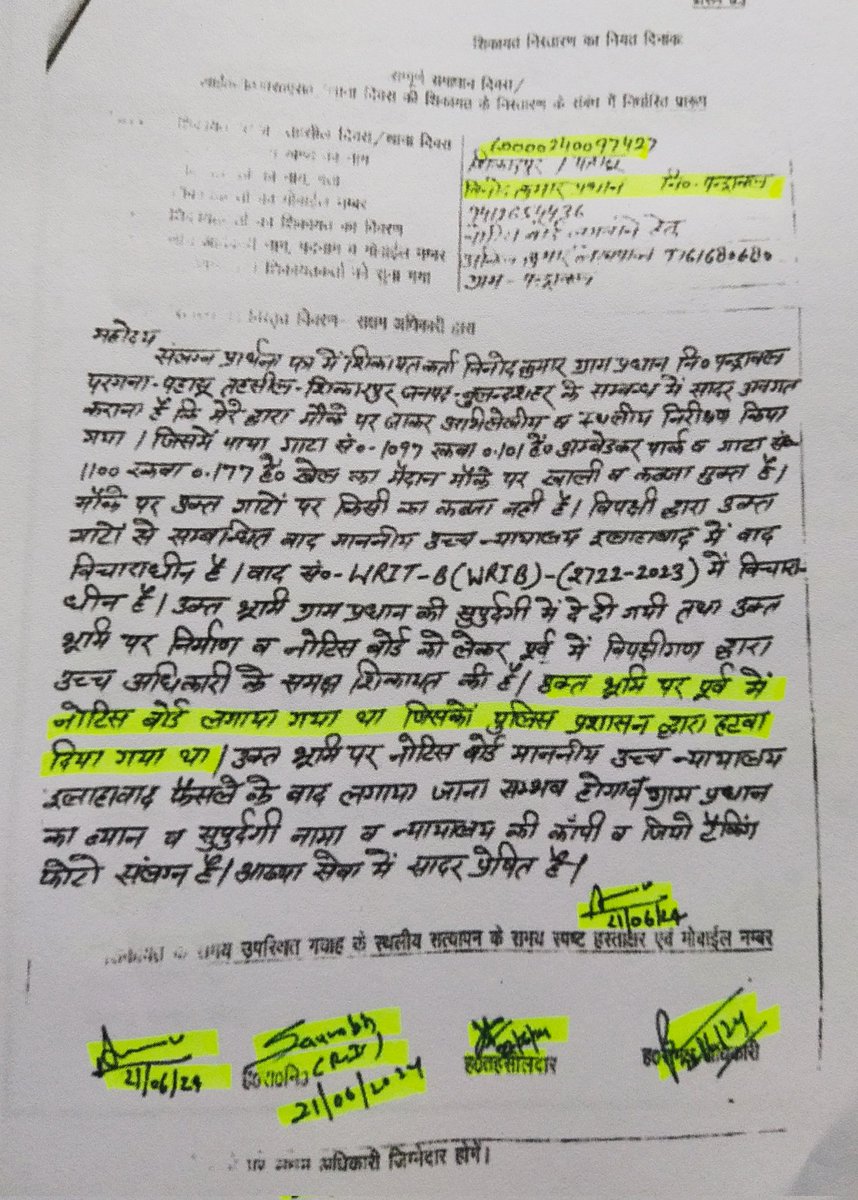 शिकायत निस्तारण का नियत दिनांक
सम्पूर्ण समाधान दिवस/
दिवस की शिकायत के निस्तारण के संबंध में निर्धारित प्रारूप
दिवस/थाना दिवस 60000240097427
का नाम शिकारपुर / पहासू
का नाम, पता विनोद कुमार प्रधान नि०-पन्द्रावल
का मोबाईल नम्बर
का शिकायत का विवरण नोटिस बोर्ड लगवाने हेतु
नाम, पदनाम व मोबाईल नम्बर कुमार लेखपाल
शिकायतकर्ता को सुना गया ग्राम - पन्द्रावल
विस्तृत विवरण- सक्षम अधिकारी द्वारा
महोदय
संलग्न प्रार्थना पत्र में शिकायतकर्ता विनोद कुमार ग्राम प्रधान नि० पन्द्रावल
परगना-पहासू तहसील-शिकारपुर जनपद बुलन्दशहर के सम्बन्ध में सादर अवगत
कराना है कि मेरे द्वारा मौके पर जाकर अभिलेखीय व स्थलीय निरीक्षण किया
गया। जिसमें पाया गाटा सं०-1097 रकवा 0.101 है० अम्बेडकर पार्क व गाटा सं०
1100 रकवा 0.177 है० खेल का मैदान मौके पर खाली व कब्जा मुक्त है।
मौके पर उक्त गाटों पर किसी का कब्जा नही है। विपक्षी द्वारा उक्त
गाटों से सम्बन्धित वाद माननीय उच्च न्यायालय इलाहाबाद में वाद
विचाराधीन है। वाद सं०-WRIT-B(WRIB)-(2722-2023) में विचारा-
धीन है। उक्त भूमि ग्राम प्रधान की सुपुर्दगी में दे दी गयी तथा उक्त
भूमि पर निर्माण व नोटिस बोर्ड को लेकर पूर्व में विपक्षीगण द्वारा
उच्च अधिकारी के समक्ष शिकायत की है। उक्त भूमि पर पूर्व में
नोटिस बोर्ड लगाया गया था जिसको पुलिस प्रशासन द्वारा हटवा
दिया गया था। उक्त भूमि पर नोटिस बोर्ड माननीय उच्च न्यायालय
इलाहावाद फैसले के वाद लगाया जाना सम्भव होगा। ग्राम प्रधान
का ब्यान व सुपुर्दगी नामा व न्यायालय की कॉपी व जियो टैकिंग
फोटो संलग्न है। आख्या सेवा में सादर प्रेषित है।
21/06/24
के समय उपस्थित गवाह के स्थलीय सत्यापन के समय स्पष्ट हस्ताक्षर एवं मोबाईल नम्बर
21/06/24 Saurabh (RI) ह०रा०नि० 21/06/2024 ह०तहसीलदार अधिकारी
अधिकारी जिम्मेदार होगें।